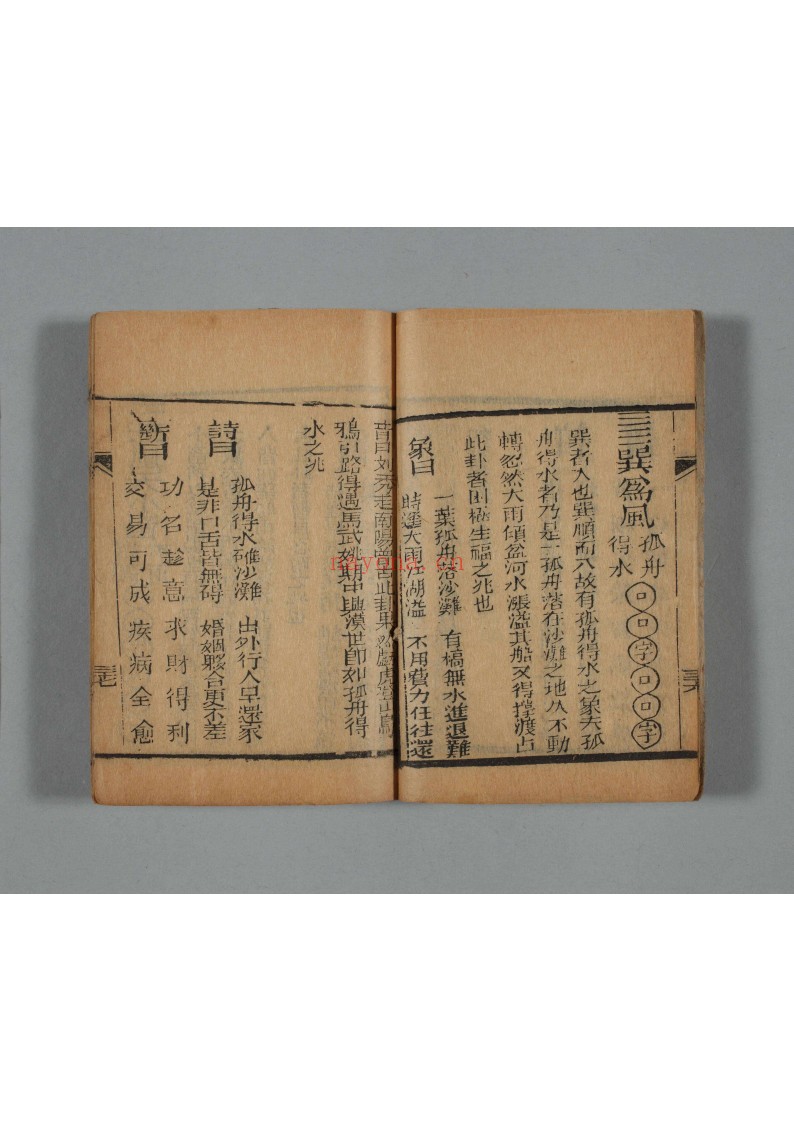 巽為風 孤舟得水 口口字口口字
巽者入也巽順而入故有孤舟得水之象夫孤
舟得水者乃是一孤舟落在沙灘之地久不動
轉忽然大雨傾盆河水漲溢其船又得撑渡占
此卦者因禍生福之兆也
象曰
一葉孤舟落沙灘 有橋無水進退難
時逢大雨江湖溢 不用費力任往還
昔日劉秀走南陽曾占此卦果然虎登山
鴉引路得遇馬武姚期中興漢世即如孤舟得
水之兆
詩曰
孤舟得水離沙灘 出外行人早還家
是非口舌皆無碍 婚姻夥合更不差
斷曰
功名趁意 求財得利
交易可成 疾病全愈